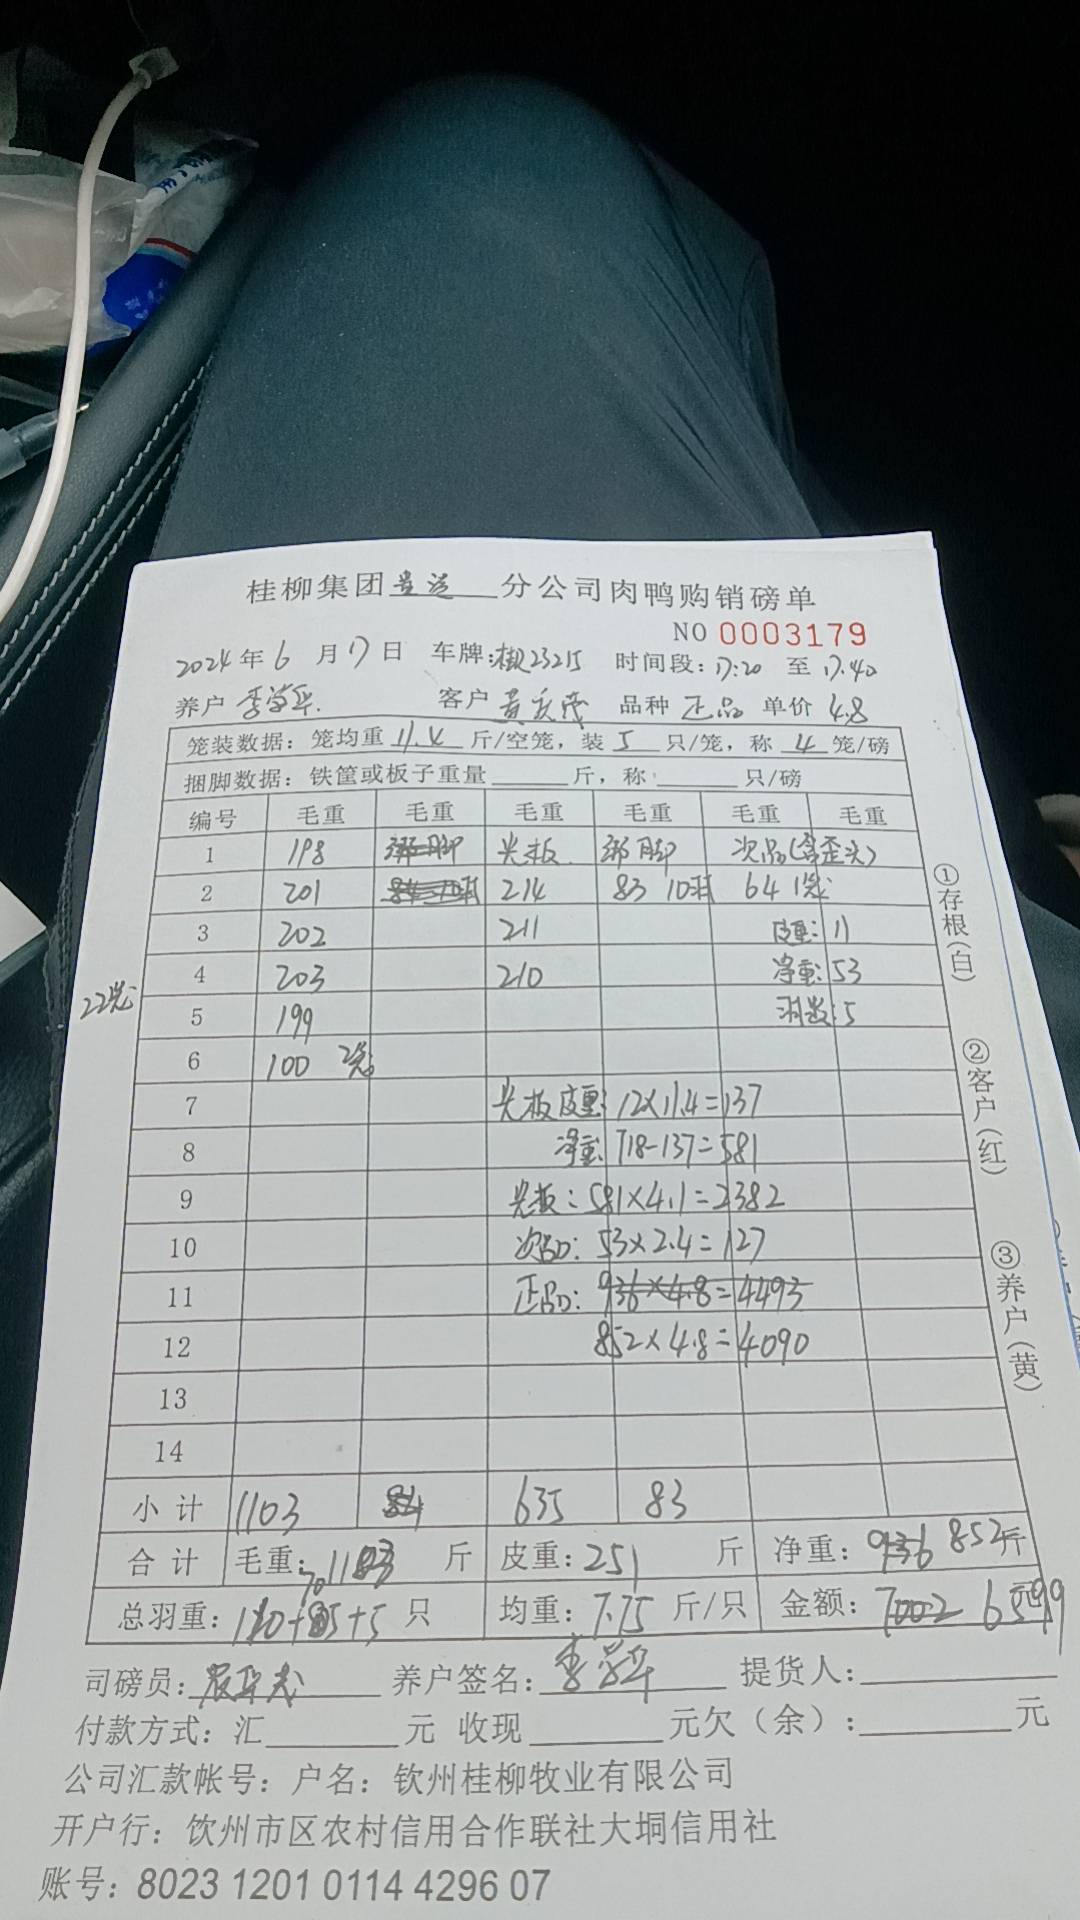 桂柳集团 分公司肉鸭购销磅单
NO 0003179
2024年6月17日 车牌: 23215 时间段:17:20 至 17.40
养户 李 客户 黄 品种 正品 单价 4.8
笼装数据:笼均重 11.4 斤/空笼,装 5 只/笼,称 4 笼/磅
捆脚数据:铁筐或板子重量 斤,称 只/磅
编号 毛重 毛重 毛重 毛重 毛重 毛重
1 198 绑脚 光板 绑脚 次品(含歪头)
2 201 84 10只 214 83 10只 64 1笼
3 202 211 皮重: 11
4 203 210 净重: 53
22笼
5 199 羽数: 5
6 100 2笼
7 光板皮重: 12×11.4=137
8 净重: 718-137=581
9 光板: 581×4.1=2382
10 次品: 53×2.4=127
11 正品: 936×4.8=4493
12 852×4.8=4090
13
14
小计 1103 84 635 83
合计 毛重: 斤 皮重: 251 斤 净重: 936 852斤
总羽重: 只 均重: 7.75 斤/只 金额: 7002 6599
司磅员: 养户签名: 李 提货人:
付款方式:汇 元 收现 元欠(余): 元
公司汇款帐号:户名:钦州桂柳牧业有限公司
开户行:钦州市区农村信用合作联社大垌信用社
账号:8023 1201 0114 4296 07
①存根(白)
②客户(红)
③养户(黄)